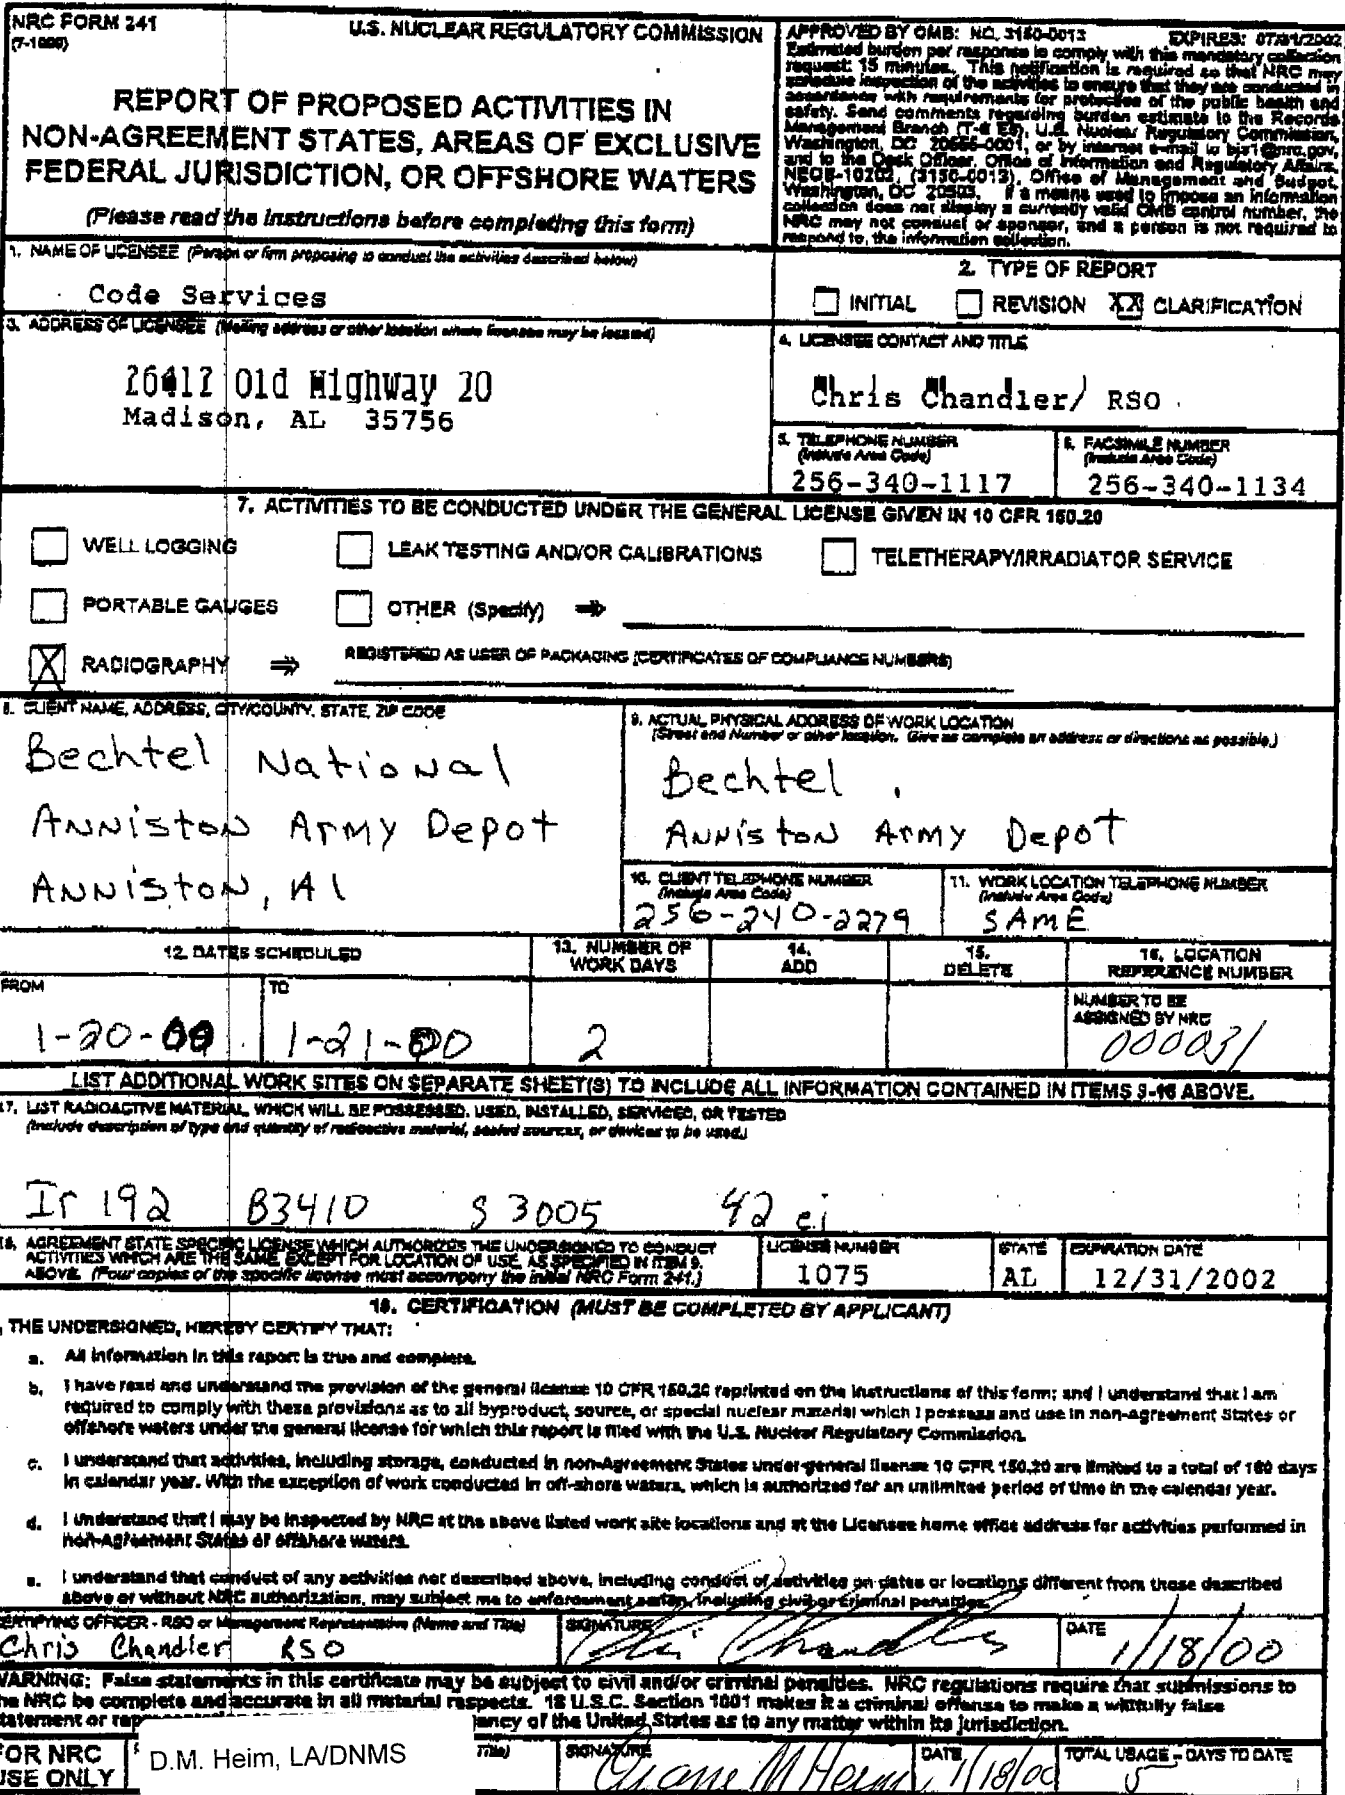 NRC FORM 241
(7-1999)
U.S. NUCLEAR REGULATORY COMMISSION
REPORT OF PROPOSED ACTIVITIES IN
NON-AGREEMENT STATES, AREAS OF EXCLUSIVE
FEDERAL JURISDICTION, OR OFFSHORE WATERS
(Please read the instructions before completing this form)
APPROVED BY OMB: NO. 3150-0013 EXPIRES: 07/31/2002
Estimated burden per response to comply with this mandatory collection
request: 15 minutes. This notification is required so that NRC may
schedule inspection of the activities to ensure that they are conducted in
accordance with requirements for protection of the public health and
safety. Send comments regarding burden estimate to the Records
Management Branch (T-6 E6), U.S. Nuclear Regulatory Commission,
Washington, DC 20555-0001, or by internet e-mail to bjs1@nrc.gov,
and to the Desk Officer, Office of Information and Regulatory Affairs,
NEOB-10202, (3150-0013), Office of Management and Budget,
Washington, DC 20503. If a means used to impose an information
collection does not display a currently valid OMB control number, the
NRC may not conduct or sponsor, and a person is not required to
respond to, the information collection.
1. NAME OF LICENSEE (Person or firm proposing to conduct the activities described below)
Code Services
2. TYPE OF REPORT
INITIAL REVISION XX CLARIFICATION
3. ADDRESS OF LICENSEE (Mailing address or other location where licensee may be located)
26412 Old Highway 20
Madison, AL 35756
4. LICENSEE CONTACT AND TITLE
Chris Chandler/ RSO
5. TELEPHONE NUMBER
(Include Area Code)
256-340-1117
6. FACSIMILE NUMBER
(Include Area Code)
256-340-1134
7. ACTIVITIES TO BE CONDUCTED UNDER THE GENERAL LICENSE GIVEN IN 10 CFR 150.20
WELL LOGGING LEAK TESTING AND/OR CALIBRATIONS TELETHERAPY/IRRADIATOR SERVICE
PORTABLE GAUGES OTHER (Specify) ⇒
X RADIOGRAPHY ⇒ REGISTERED AS USER OF PACKAGING (CERTIFICATES OF COMPLIANCE NUMBERS)
8. CLIENT NAME, ADDRESS, CITY/COUNTY, STATE, ZIP CODE
Bechtel National
Anniston Army Depot
Anniston, Al
9. ACTUAL PHYSICAL ADDRESS OF WORK LOCATION
(Street and Number or other location. Give as complete an address or directions as possible.)
Bechtel
Anniston Army Depot
10. CLIENT TELEPHONE NUMBER
(Include Area Code)
256-240-2279
11. WORK LOCATION TELEPHONE NUMBER
(Include Area Code)
SAME
12. DATES SCHEDULED
13. NUMBER OF
WORK DAYS
14.
ADD
15.
DELETE
16. LOCATION
REFERENCE NUMBER
FROM
1-20-00
TO
1-21-00
2
NUMBER TO BE
ASSIGNED BY NRC
000031
LIST ADDITIONAL WORK SITES ON SEPARATE SHEET(S) TO INCLUDE ALL INFORMATION CONTAINED IN ITEMS 8-16 ABOVE.
17. LIST RADIOACTIVE MATERIAL, WHICH WILL BE POSSESSED, USED, INSTALLED, SERVICED, OR TESTED
(Include description of type and quantity of radioactive material, sealed sources, or devices to be used.)
Ir 192 B3410 S 3005 42 ci
18. AGREEMENT STATE SPECIFIC LICENSE WHICH AUTHORIZES THE UNDERSIGNED TO CONDUCT
ACTIVITIES WHICH ARE THE SAME, EXCEPT FOR LOCATION OF USE, AS SPECIFIED IN ITEM 9,
ABOVE. (Four copies of the specific license must accompany the initial NRC Form 241.)
LICENSE NUMBER
1075
STATE
AL
EXPIRATION DATE
12/31/2002
19. CERTIFICATION (MUST BE COMPLETED BY APPLICANT)
, THE UNDERSIGNED, HEREBY CERTIFY THAT:
a. All information in this report is true and complete.
b. I have read and understand the provision of the general license 10 CFR 150.20 reprinted on the instructions of this form; and I understand that I am
required to comply with these provisions as to all byproduct, source, or special nuclear material which I possess and use in non-Agreement States or
offshore waters under the general license for which this report is filed with the U.S. Nuclear Regulatory Commission.
c. I understand that activities, including storage, conducted in non-Agreement States under general license 10 CFR 150.20 are limited to a total of 180 days
in calendar year. With the exception of work conducted in off-shore waters, which is authorized for an unlimited period of time in the calendar year.
d. I understand that I may be inspected by NRC at the above listed work site locations and at the Licensee home office address for activities performed in
non-Agreement States or offshore waters.
e. I understand that conduct of any activities not described above, including conduct of activities on dates or locations different from those described
above or without NRC authorization, may subject me to enforcement action, including civil or criminal penalties.
CERTIFYING OFFICER - RSO or Management Representative (Name and Title)
Chris Chandler RSO
SIGNATURE
Chris Chandler
DATE
1/18/00
WARNING: False statements in this certificate may be subject to civil and/or criminal penalties. NRC regulations require that submissions to
he NRC be complete and accurate in all material respects. 18 U.S.C. Section 1001 makes it a criminal offense to make a willfully false
tatement or ency of the United States as to any matter within its jurisdiction.
FOR NRC
USE ONLY
D.M. Heim, LA/DNMS
Title)
SIGNATURE
Diane M Heim
DATE
1/18/00
TOTAL USAGE - DAYS TO DATE
5